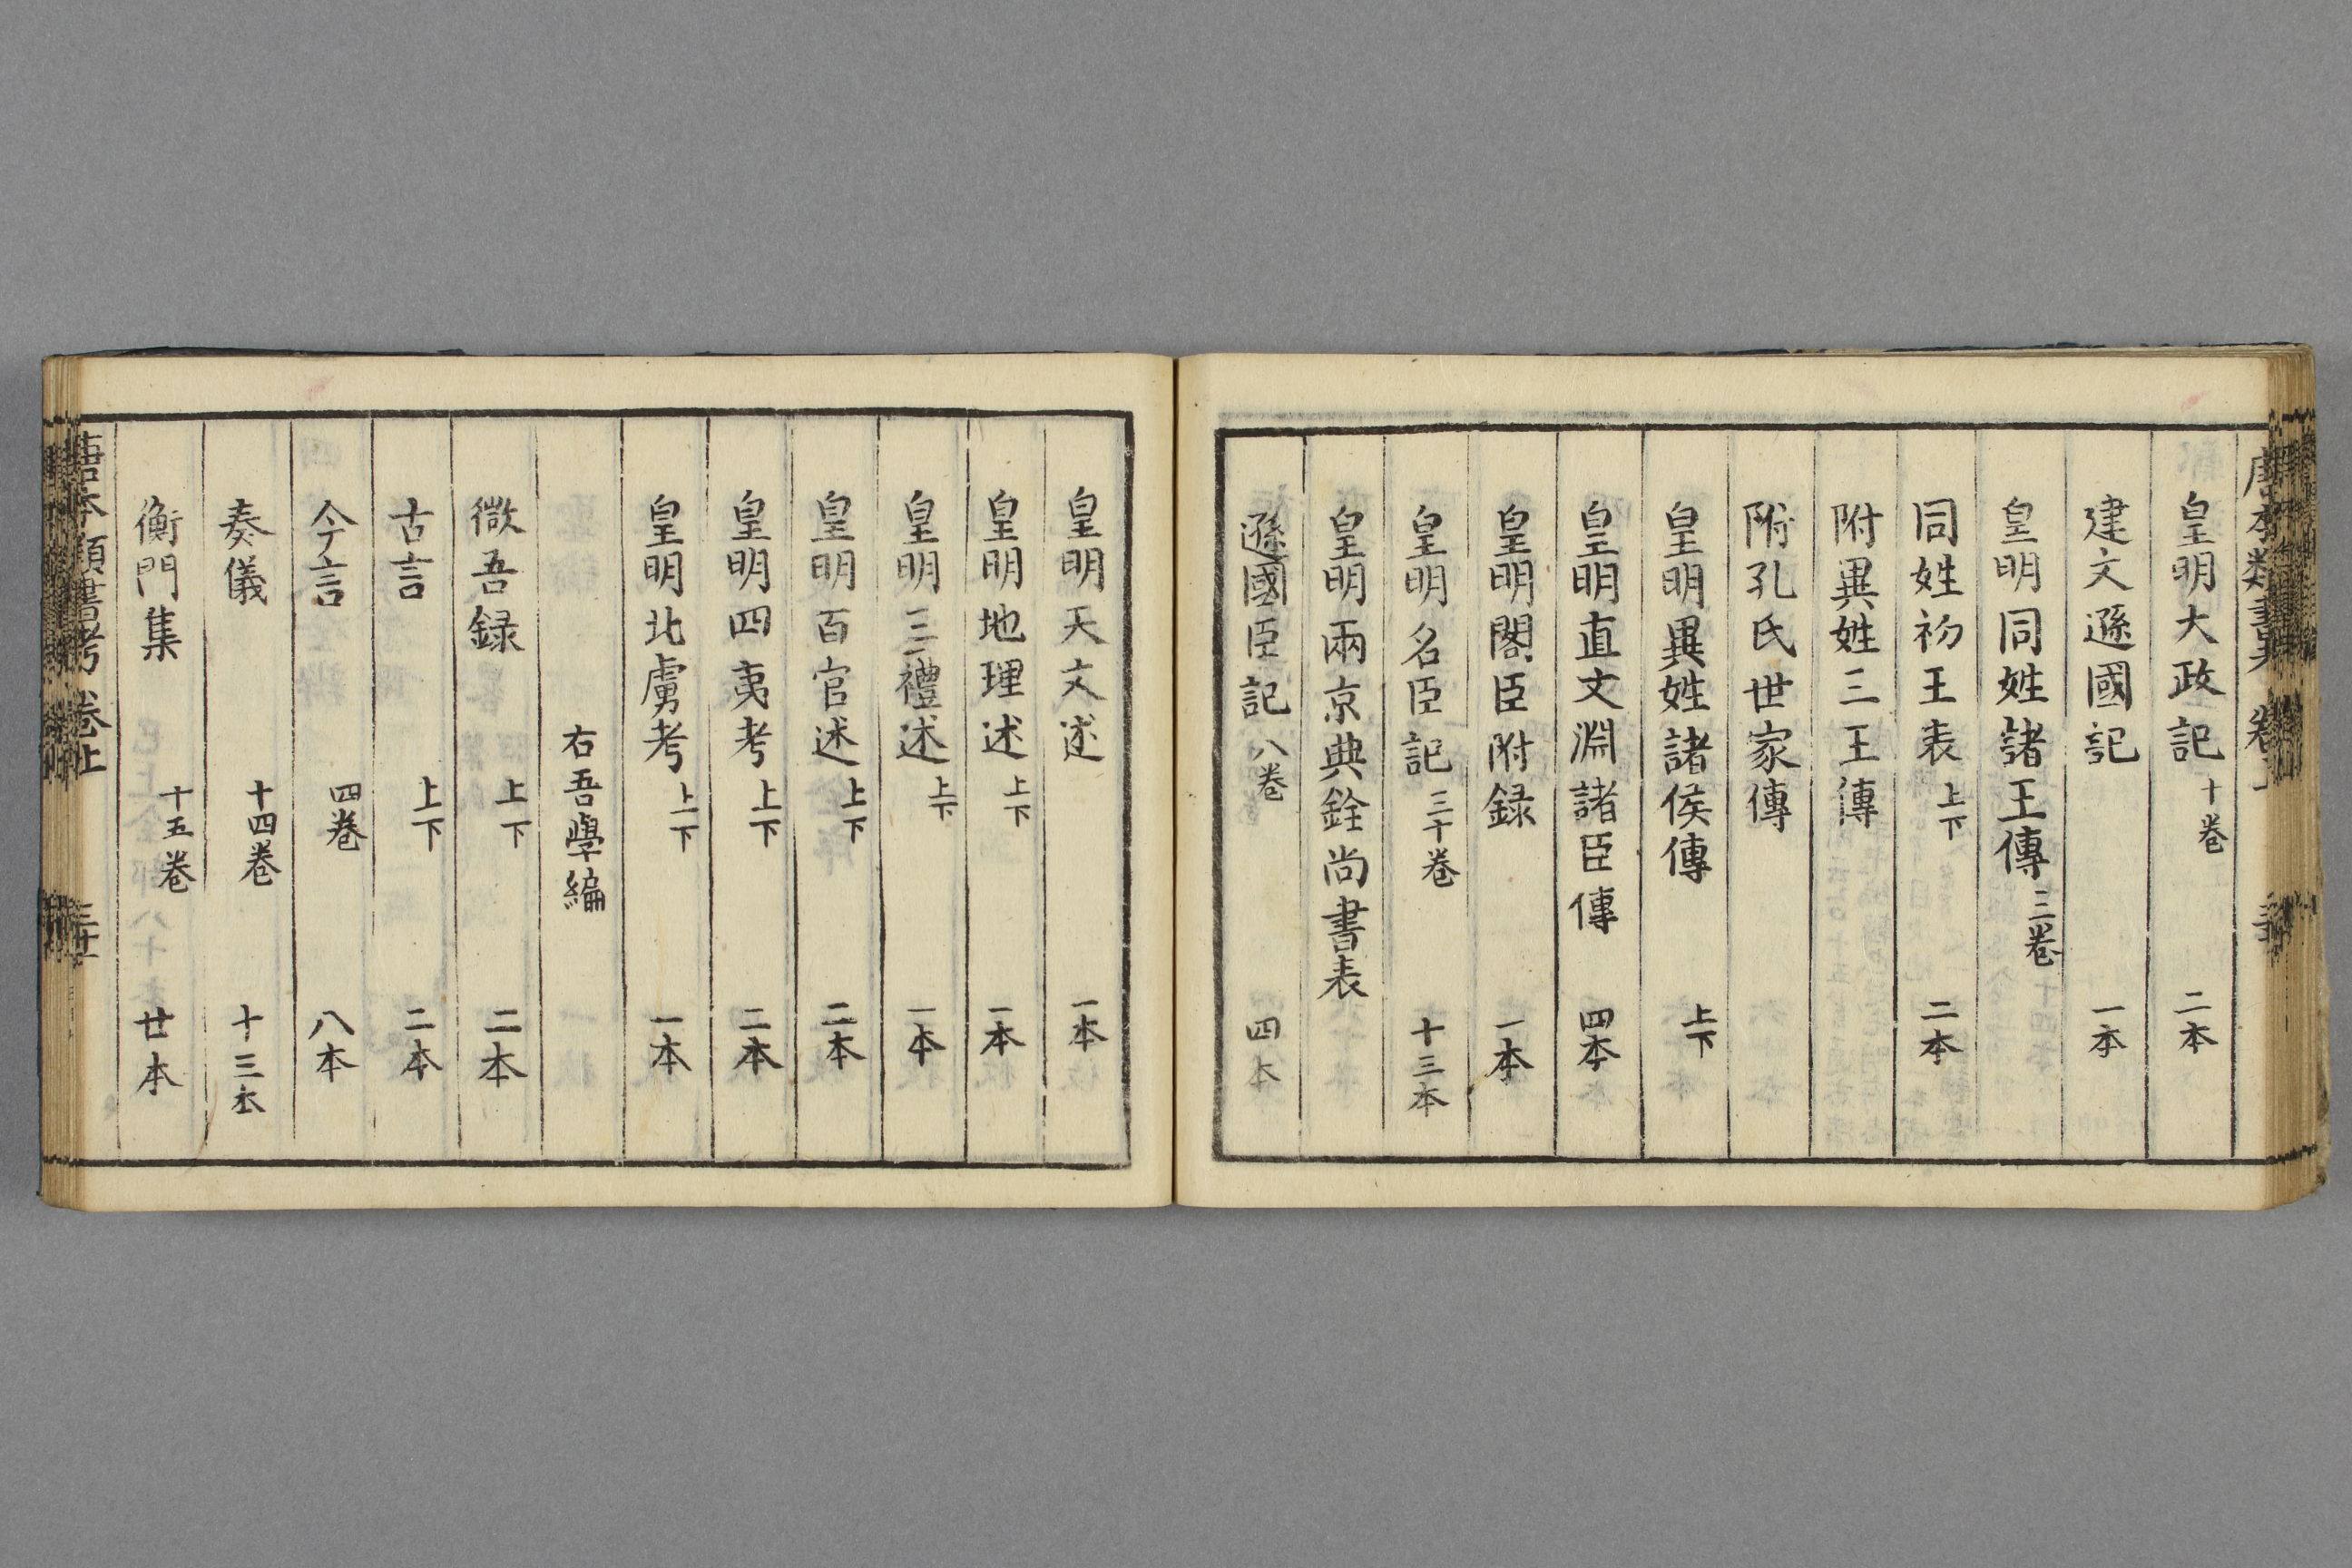 皇明大政記 十卷 二本
建文遜國記 一本
皇明同姓諸王傳 三卷
同姓初王表 上下 二本
附異姓三王傳
附孔氏世家傳
皇明異姓諸侯傳 上下
皇明直文淵諸臣傳 四本
皇明閣臣附録 一本
皇明名臣記 三十卷 十三本
皇明兩京典銓尚書表
遜國臣記 八卷 四本
皇明天文述 一本
皇明地理述 上下 一本
皇明三禮述 上下 一本
皇明百官述 上下 二本
皇明四夷考 上下 二本
皇明北虜考 上下 一本
右吾學編
徴吾録 上下 二本
古言 上下 二本
今言 四卷 八本
奏儀 十四卷 十三本
衡門集 十五卷 廿本
唐本類書考 卷上